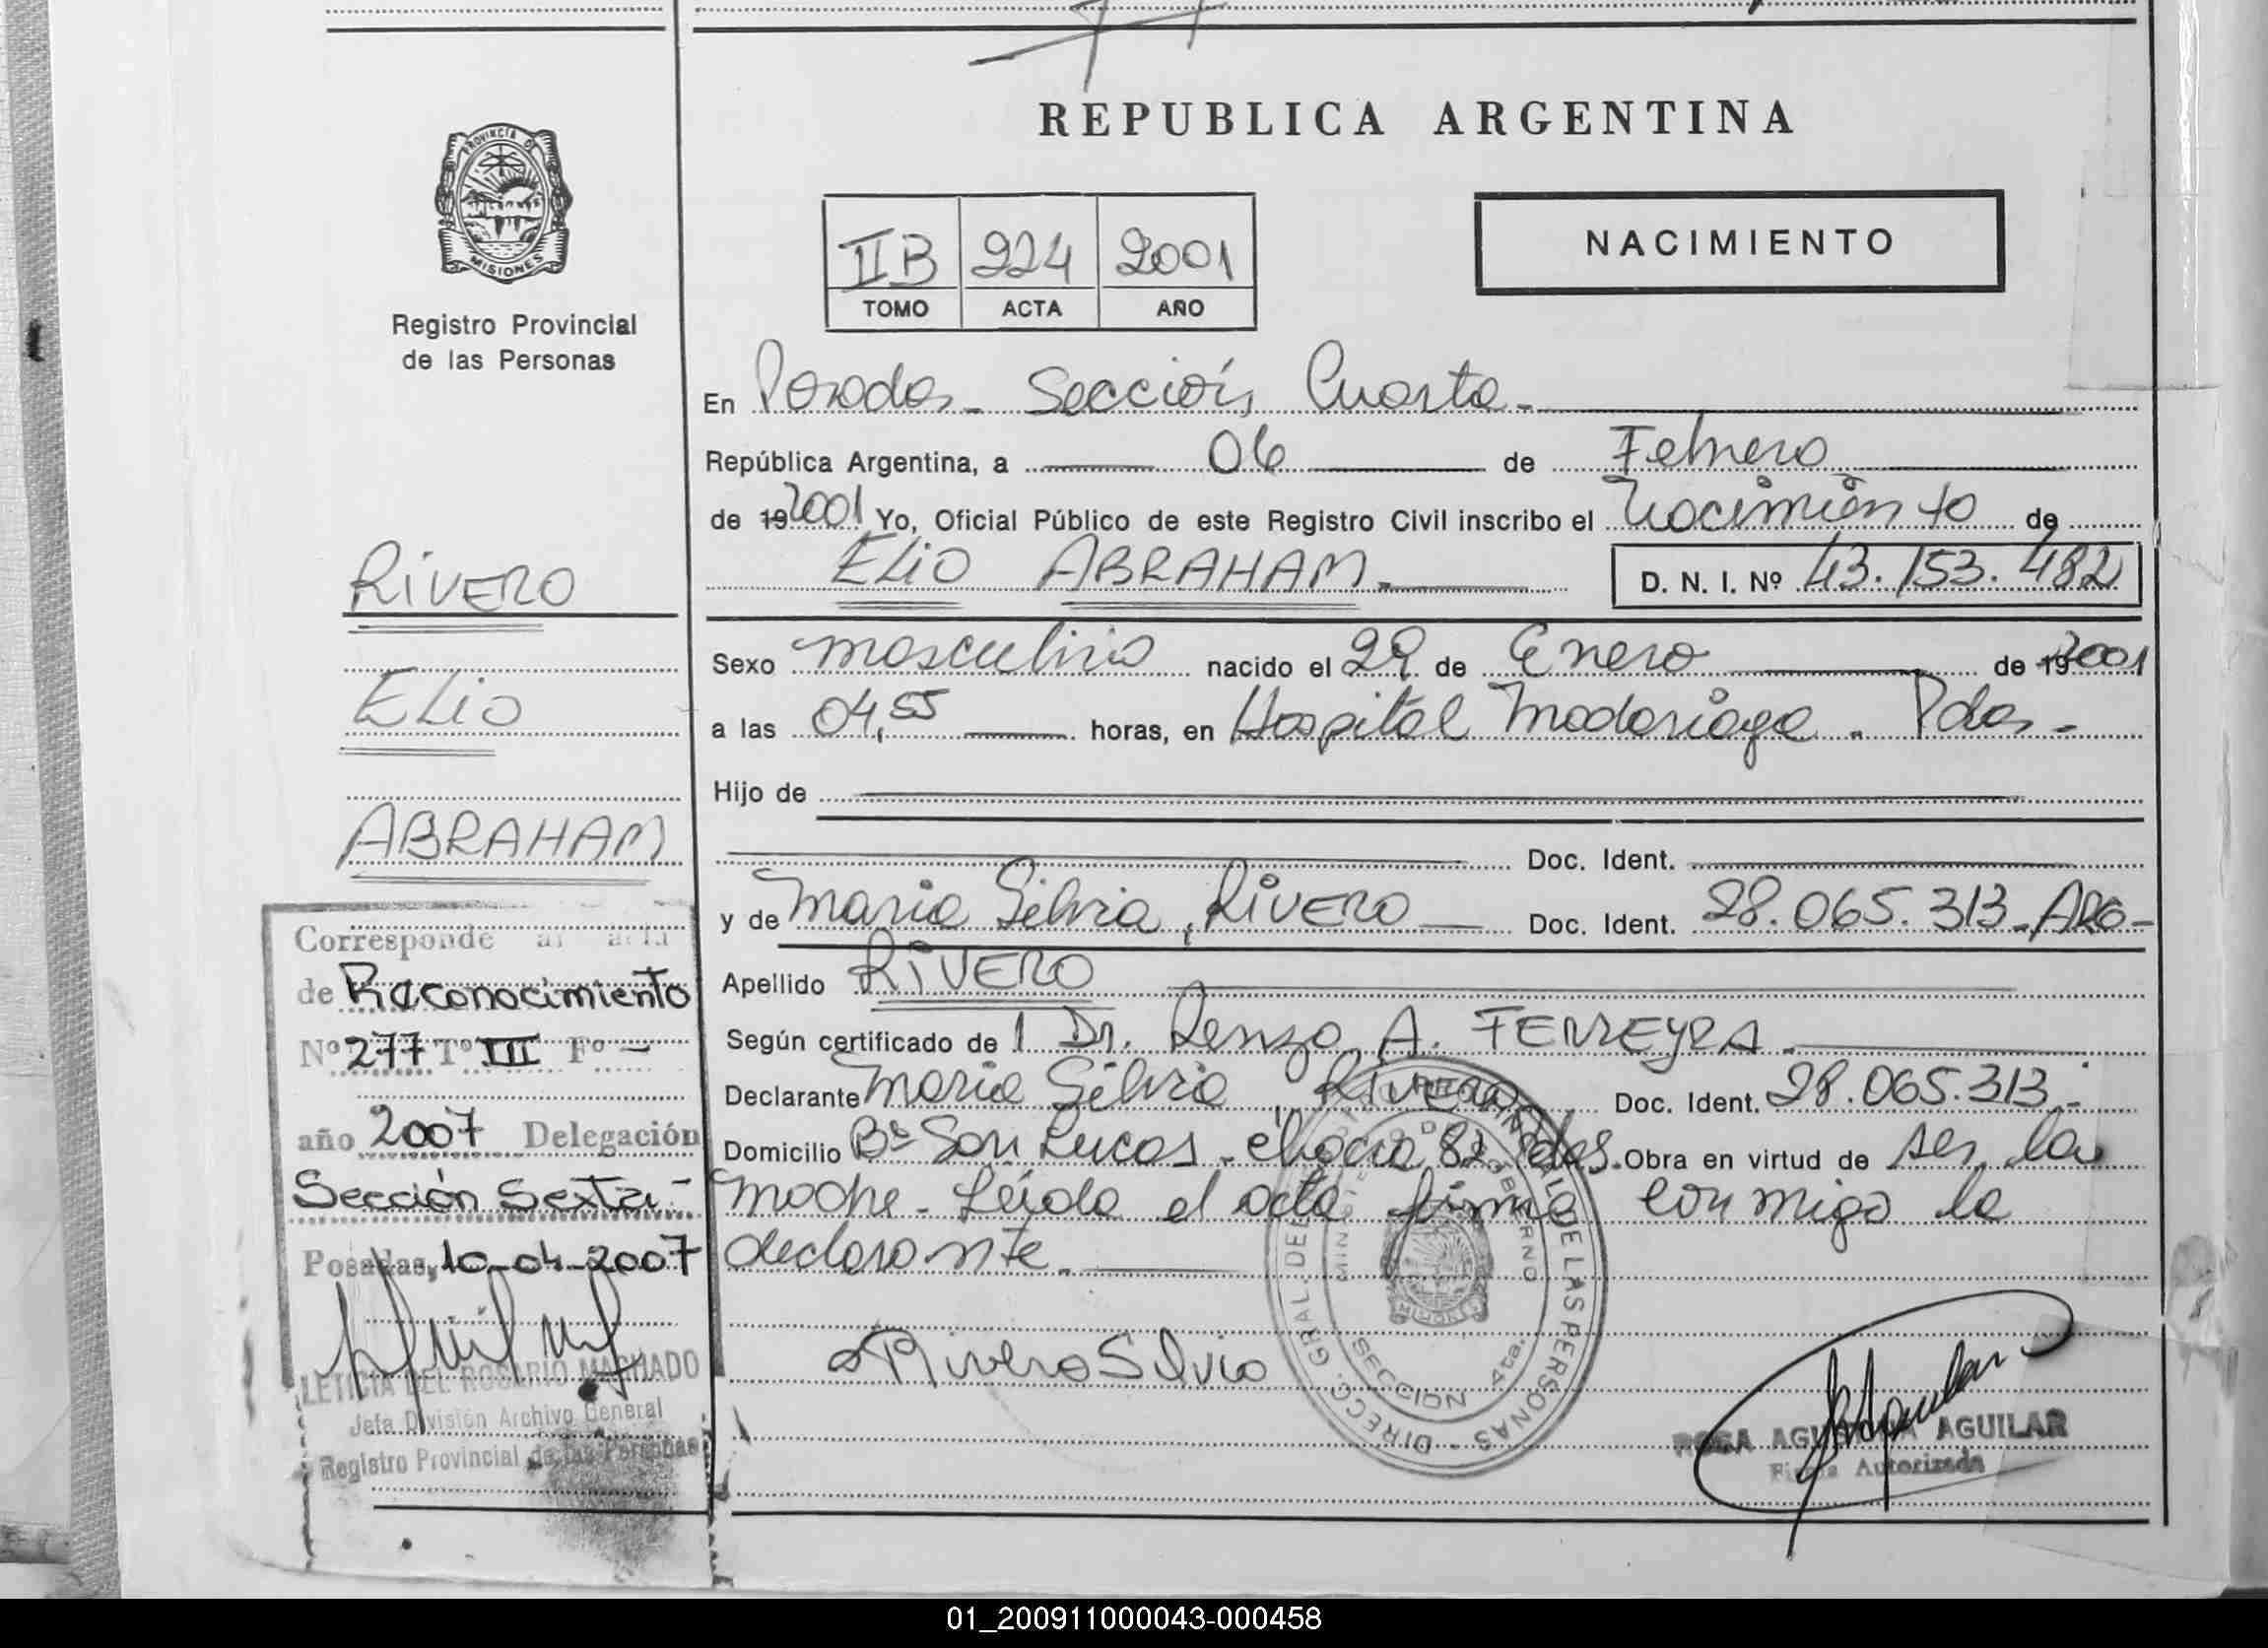 REPUBLICA ARGENTINA
PROVINCIA DE
MISIONES
Registro Provincial
de las Personas
IIB 224 2001
TOMO ACTA AÑO
NACIMIENTO
En Posadas - Sección Cuarta -
República Argentina, a 06 de Febrero
de 19 2001 Yo, Oficial Público de este Registro Civil inscribo el Nacimiento de
ELIO ABRAHAM.- D. N. I. Nº 43.153.482
Sexo masculino nacido el 29 de Enero de 19 2001
a las 04,55 horas, en Hospital Madariaga - Pdas -
Hijo de
Doc. Ident.
y de Maria Silvia, RIVERO Doc. Ident. 28.065.313 - ARG -
Apellido RIVERO
Según certificado de 1 Dr. Renzo A. FERREYRA -
Declarante Maria Silvia, RIVERO Doc. Ident. 28.065.313 -
Domicilio Bº San Lucas - chacra 82 - Pdas. Obra en virtud de ser la
madre - Leída el acta firma conmigo la
declarante.
Rivero Silvia
DIRECC. GRAL. DEL REG. PROVINCIAL DE LAS PERSONAS
MINISTERIO DE GOBIERNO
SECCION 4ta.
ROSA AGUSTINA AGUILAR
Firma Autorizada
RIVERO
ELIO
ABRAHAM
Corresponde al acta
de Reconocimiento
Nº 277 Tº III Fº -
año 2007 Delegación
Sección Sexta -
Posadas, 10-04-2007
LETICIA DEL ROSARIO MACHADO
Jefa División Archivo General
Registro Provincial de las Personas
01_200911000043-000458